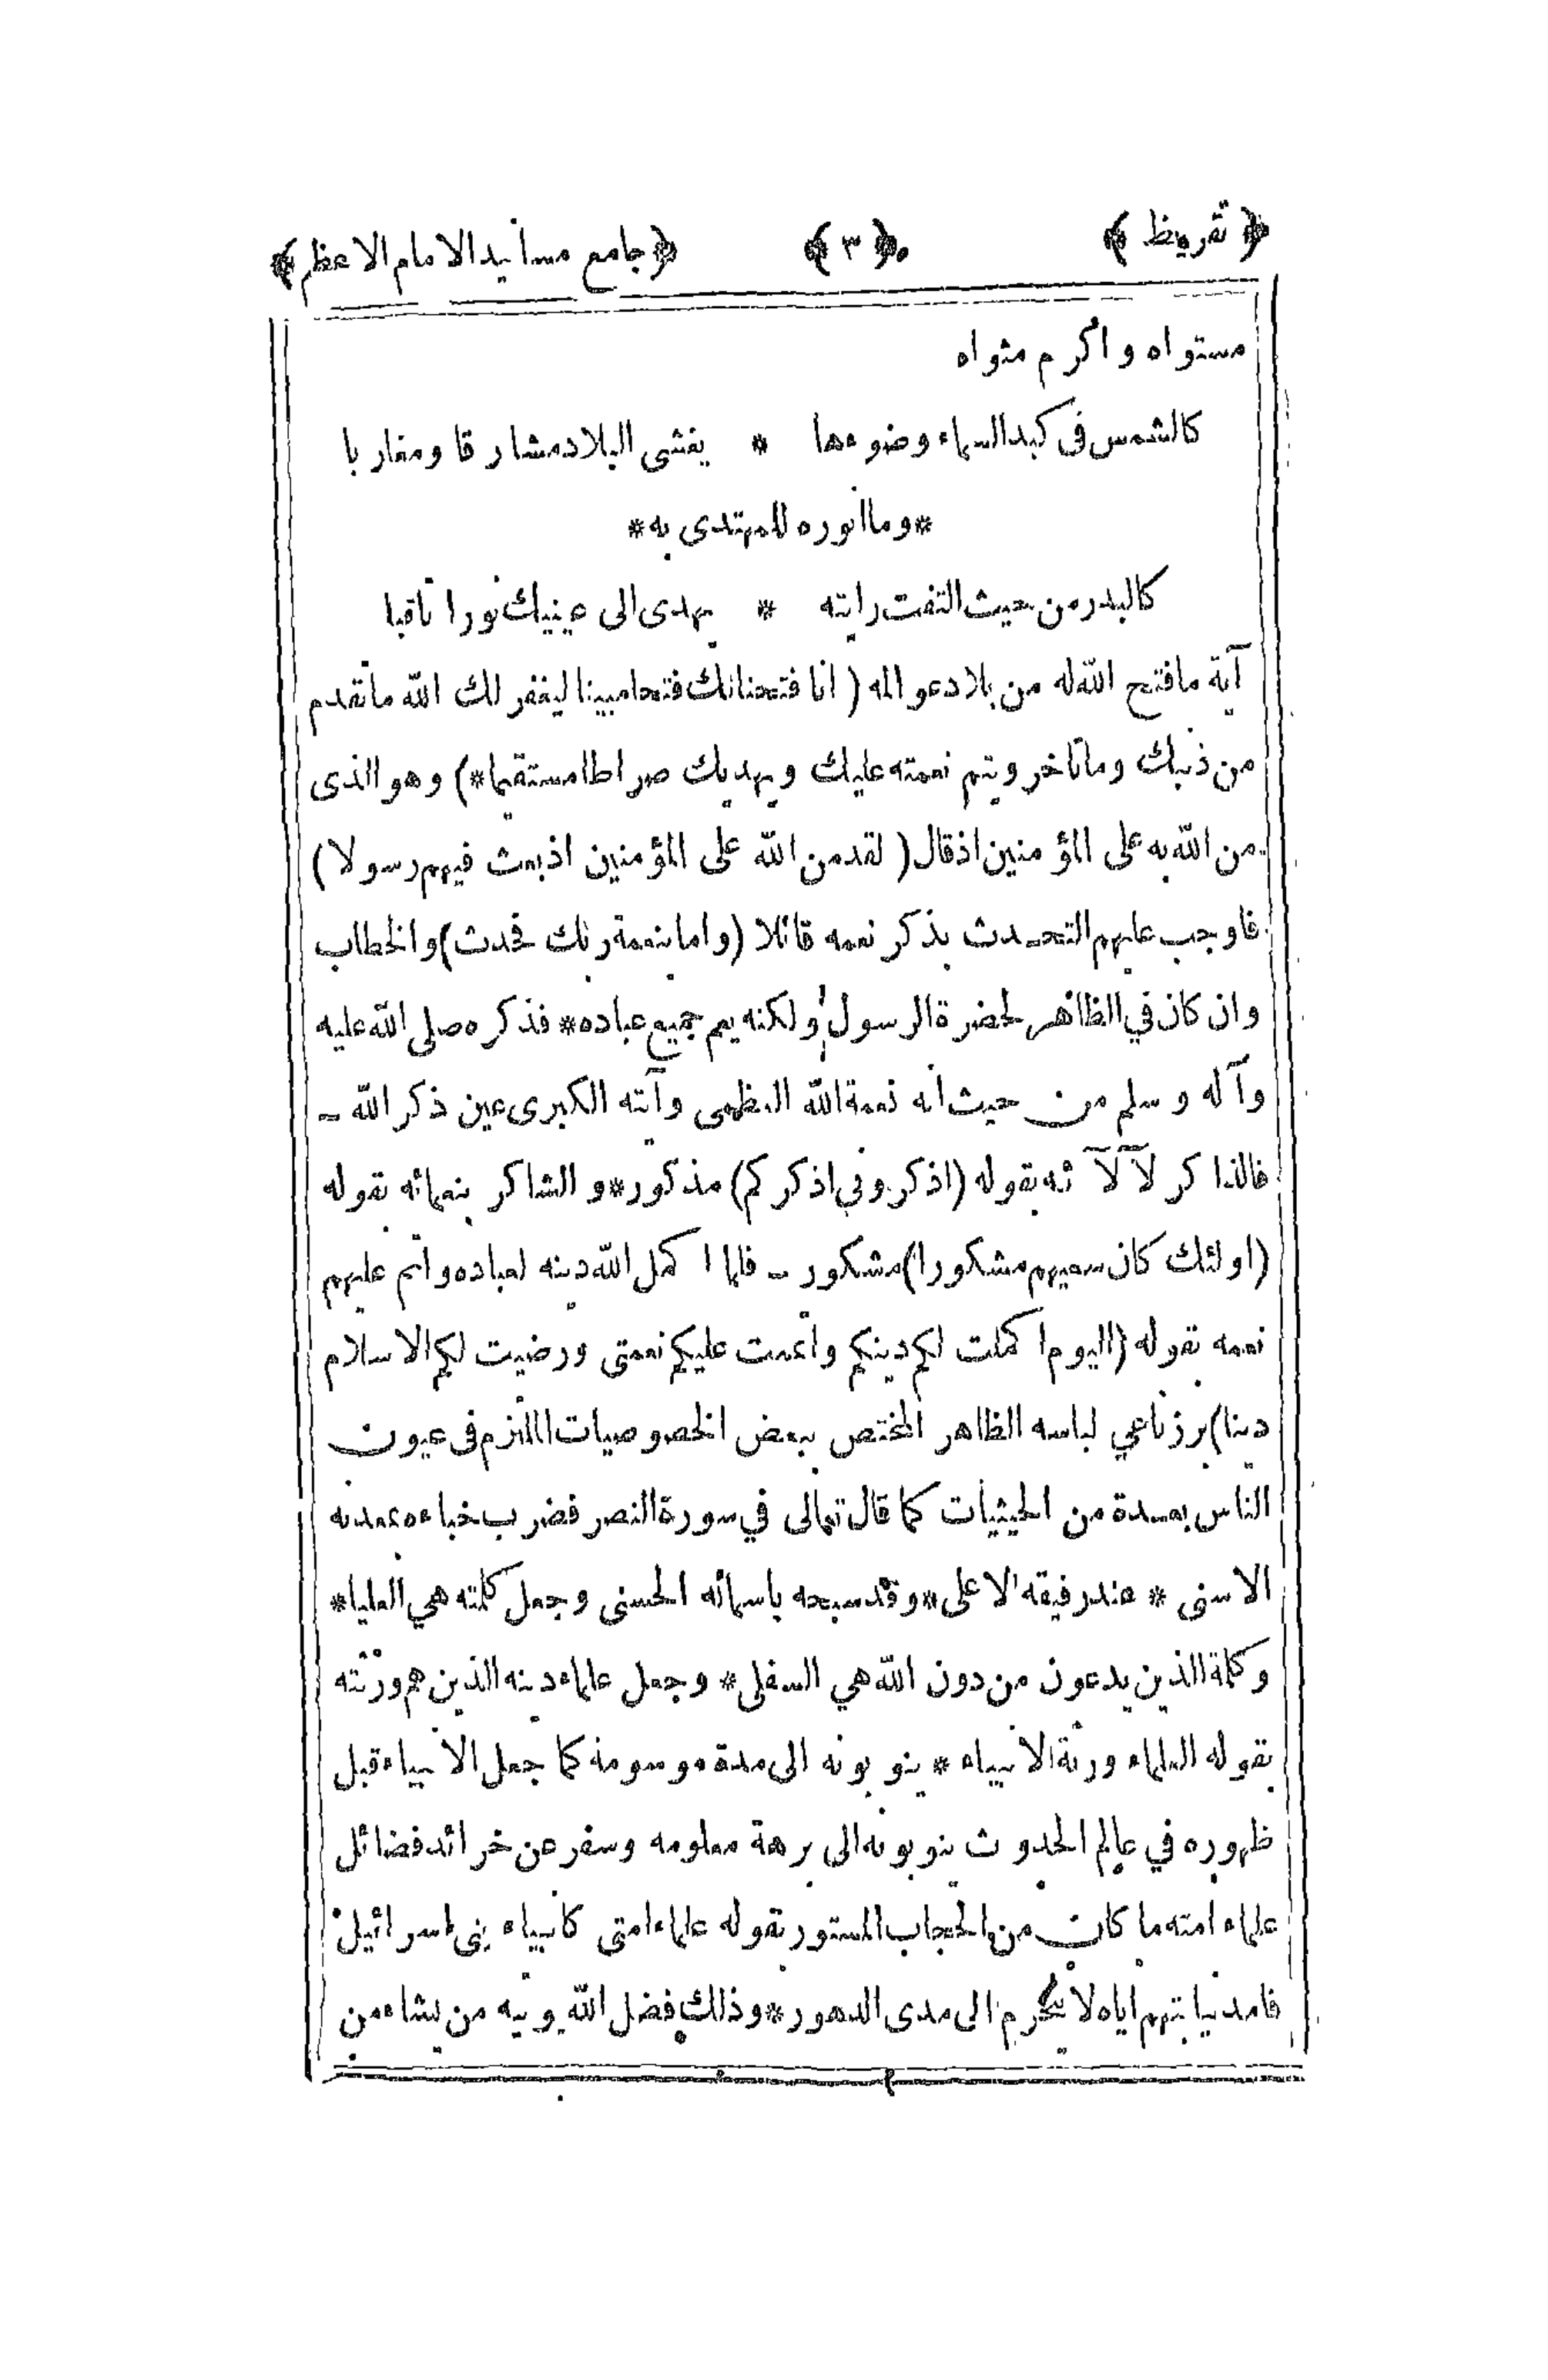 ﴿تقريظ﴾ ﴿٣﴾ ﴿جامع مسانيد الامام الاعظم﴾
مستواه واكرم مثواه
كالشمس فى كبد السماء وضوءها * يغشى البلاد مشارقا ومغاربا
*وما انوره للمهتدى به*
كالبدر من حيث التفت رايته * يهدى الى عينيك نورا ثاقبا
آية مافتح الله له من بلاد عوالمه (انا فتحنالك فتحا مبينا ليغفر لك الله ما تقدم
من ذنبك وما تأخر ويتم نعمته عليك ويهديك صراطا مستقيما*) وهو الذى
من الله به على المؤمنين اذ قال (لقد من الله على المؤمنين اذ بعث فيهم رسولا)
فاوجب عليهم التحدث بذكر نعمه قائلا (واما بنعمة ربك فحدث) والخطاب
وان كان في الظاهر لحضرة الرسول ولكنه يعم جميع عباده* فذكره صلى الله عليه
وآله وسلم من حيث انه نعمة الله العظمى وآيته الكبرى عين ذكر الله -
فالذاكر لآلآئه بقوله (اذكرونى اذكركم) مذكور* والشاكر بنعمائه بقوله
(اولئك كان سعيهم مشكورا) مشكور - فلما اكمل الله دينه لعباده واتم عليهم
نعمه بقوله (اليوم اكملت لكم دينكم واتممت عليكم نعمتى ورضيت لكم الاسلام
دينا) برز ناعي لباسه الظاهر المختص ببعض الخصوصيات الملتزم فى عيون
الناس بعدة من الحيثيات كما قال تعالى في سورة النصر فضرب خباءه بمعدنه
الاسنى * عند رفيقه الاعلى* وقد سبحه باسمائه الحسنى وجعل كلمته هي العليا*
وكلمة الذين يدعون من دون الله هي السفلى* وجعل علماء دينه الذين هم ورثته
بقوله العلماء ورثة الانبياء * ينوبونه الى مدة موسومة كما جعل الانبياء قبل
ظهوره في عالم الحدوث ينوبونه الى برهة معلومه وسفر عن خرائد فضائل
علماء امته ما كان من الحجاب المستور بقوله علماء امتى كانبياء بنى اسرائيل
فامد نيابتهم اياه لا الى مدى الدهور* وذلك فضل الله يوتيه من يشاء من